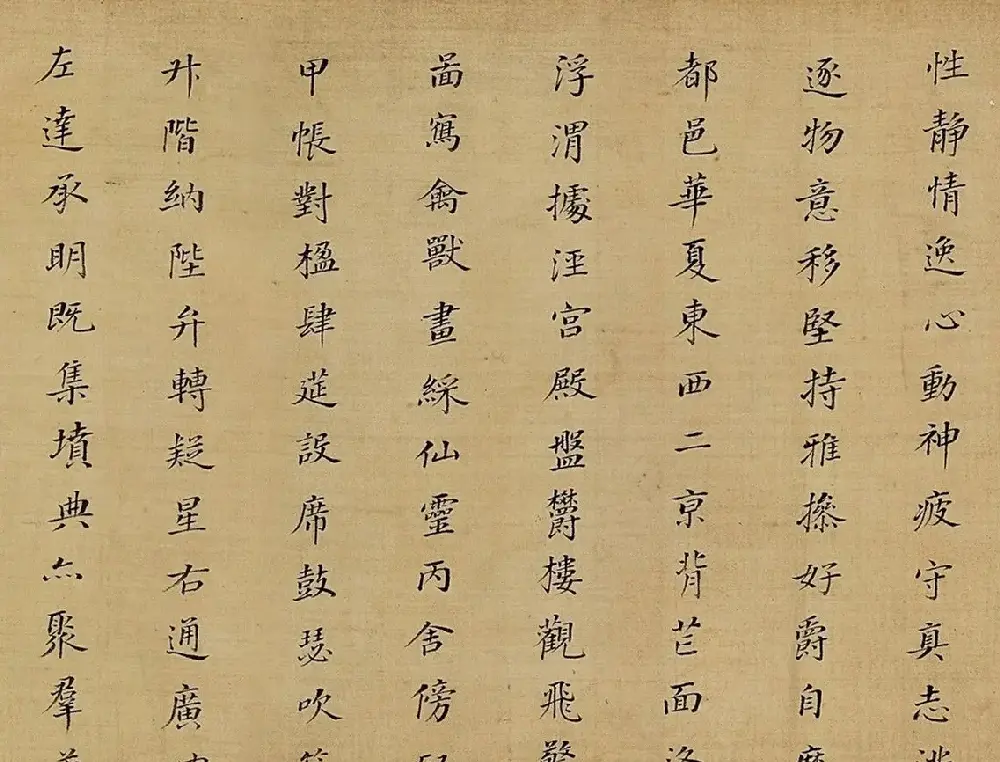 性静情逸心動神疲守真志滿
逐物意移堅持雅操好爵自縻
都邑華夏東西二京背芒面洛
浮渭據涇宮殿盤欝樓觀飛驚
啚寫禽獸畫綵仙靈丙舍傍啓
甲帳對楹肆莚設席鼓瑟吹笙
升階納陛弁轉疑星右通廣内
左達承明既集墳典亦聚羣英